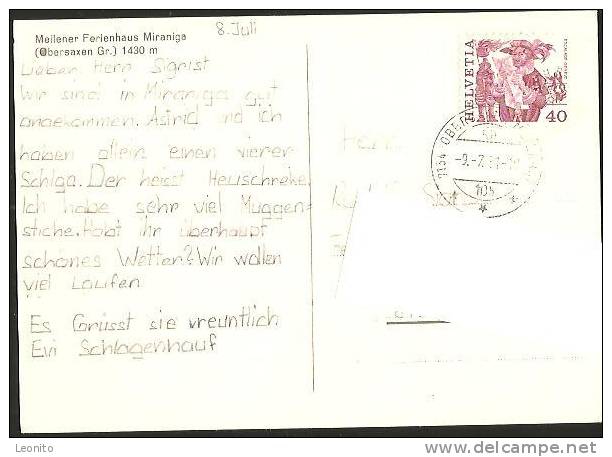 Meilener Ferienhaus Miraniga
(Obersaxen Gr.) 1430 m
8. Juli
Lieber Herr Sigrist
Wir sind in Miraniga gut
angekommen. Astrid und ich
haben allein einen vierer-
Schlga. Der heist Heuschreke.
Ich habe sehr viel Muggen-
stiche. Habt ihr überhaupt
schönes Wetter? Wir wollen
viel Laufen
Es Grüsst sie vreuntlich
Evi Schlagenhauf
HELVETIA
40
7134
-9.-7.
Leonito
www.delcampe.net